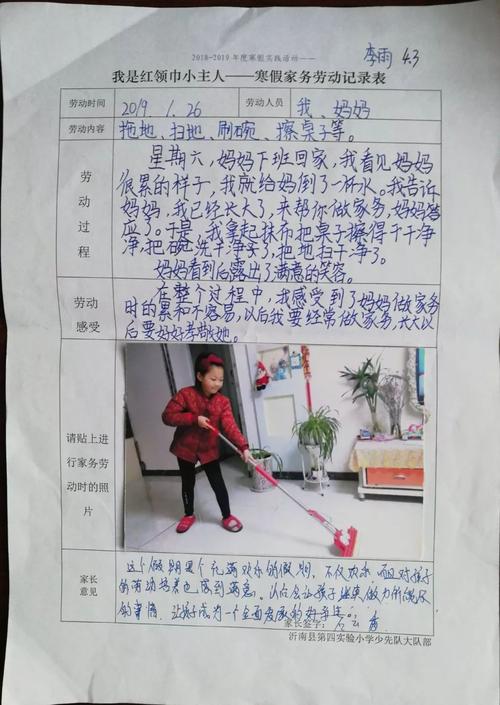 2018-2019年度寒假实践活动——
李雨 4.3
我是红领巾小主人——寒假家务劳动记录表
劳动时间 2019.1.26 劳动人员 我、妈妈
劳动内容 拖地、扫地、刷碗、擦桌子等。
劳动过程
星期六，妈妈下班回家，我看见妈妈
很累的样子，我就给妈倒了一杯水。我告诉
妈妈，我已经长大了，来帮你做家务，妈妈答
应了。于是，我拿起抹布把桌子擦得干干净
净，把碗洗干净了，把地扫干净了。
妈妈看到后露出了满意的笑容。
劳动感受
在整个过程中，我感受到了妈妈做家务
时的累和不容易，以后我要经常做家务，长大以
后要好好孝敬她。
请贴上进行家务劳动时的照片
家长意见
这个假期是个充满欢乐的假期，不仅
对孩子
的劳动培养也感到满意。以后会让孩子做力所能及
的事情，让孩子成为一个全面发展的好学生。
家长签字：
沂南县第四实验小学少先队大队部